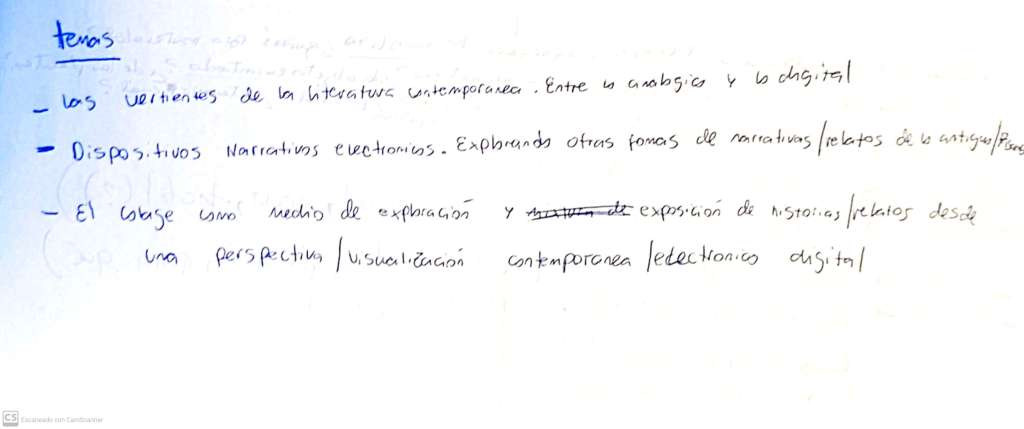 temas
- Las vertientes de la literatura contemporanea. Entre lo analogico y lo digital
- Dispositivos Narrativos electronicos. Explorando otras formas de narrativas/relatos de lo antiguo/
- El collage como medio de exploración y mixtura de exposición de historias/relatos desde
una perspectiva/visualización contemporanea/electronico digital
CS Escaneado con CamScanner